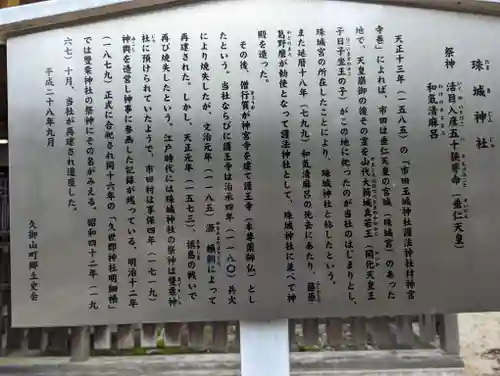 珠城神社
祭神　活目入彦五十狭茅命（垂仁天皇）
和気清麻呂
天正十三年（一五八五）の「市田玉城神社護法神社村神宮
寺巻」によれば、市田は垂仁天皇の宮城（珠城宮）のあった
地で、天皇崩御の後その霊を山代大筒城真若王（開化天皇王
子日子坐王の子）がこの地に祀ったのが当社のはじまりとし、
珠城宮の所在したことにより、珠城神社と称したという。
また延暦十八年（七九九）和気清麻呂の死去にあたり、藤原
葛野麿が勅使となって護法神社として、珠城神社に並べて神
殿を造った。
その後、僧行賀が神宮寺を建て護王寺（本尊薬師仏）とし
たという。当社ならびに護王寺は治承四年（一一八〇）兵火
により焼失したが、文治元年（一一八五）源頼朝によって
再建された。しかし、天正元年（一五七三）、槙島の戦いで
再び焼失したという。江戸時代には珠城神社の祭神は雙栗神
社に預けられていたようで、市田村は享保四年（一七一九）
神輿を造営し神事に参画した記録が残っている。明治十二年
（一八七九）正式に合祀され同十六年の「久世郡神社明細帳」
では雙栗神社の祭神にその名がみえる。昭和四十二年（一九
六七）十月、当社が再建され遷座した。
平成二十八年九月
久御山町郷土史会